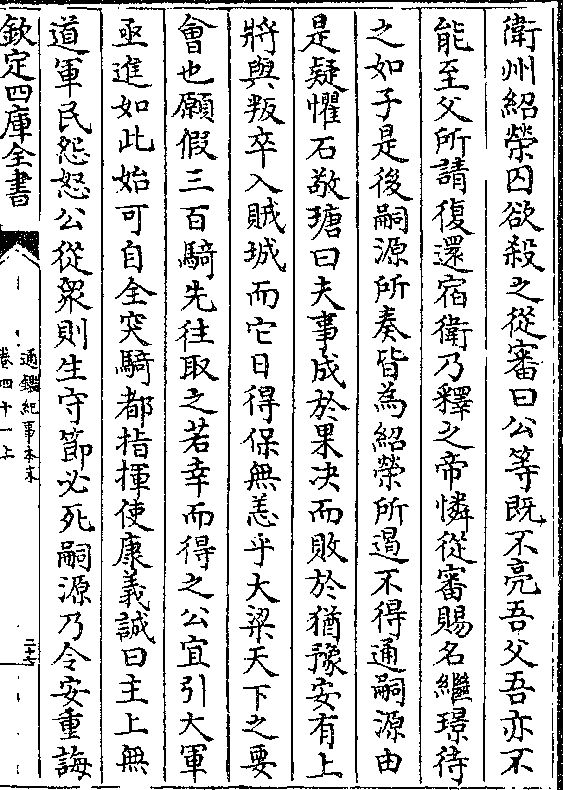 衛州紹榮囚欲殺之從審曰公等既不亮吾父吾亦不
能至父所請復還宿衛乃釋之帝憐從審賜名繼璟待
之如子是後嗣源所奏皆為紹榮所遏不得通嗣源由
是疑懼石敬瑭曰夫事成於果决而敗於猶豫安有上
將與叛卒入賊城而它日得保無恙乎大梁天下之要
㑹也願假三百騎先往取之若幸而得之公宜引大軍
亟進如此始可自全突騎都指揮使康義誠曰主上無
道軍民怨怒公從衆則生守節必死嗣源乃令安重誨
欽定四庫全書
通鑑紀事本末
卷四十一上
二十七